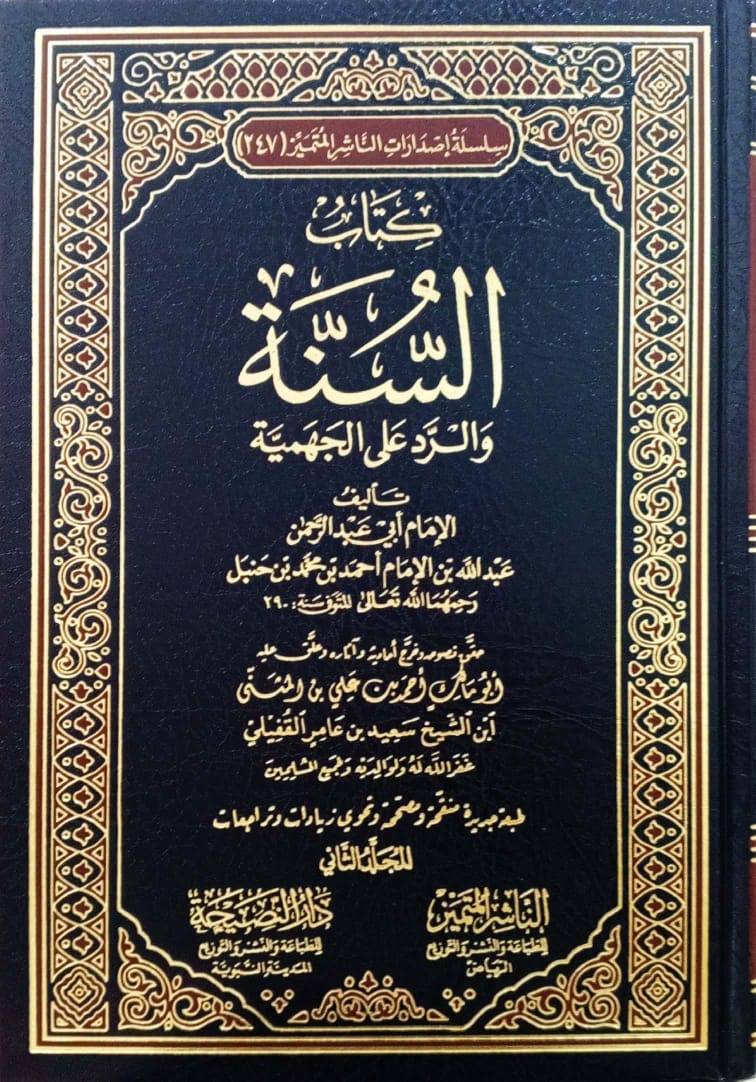 سِلسِلَةُ إصْدَارَاتِ النَّاشِرِ المُتَمَيِّز (٢٤٧)
كِتَابُ
السُّنَّة
وَالرَّد عَلى الجَهميَّة
تَأليفُ
الإمَام أَبي عَبْد الرَّحمٰن
عَبْد اللَّه بن الإمَام أحمَد بن محمَّد بن حَنبَل
رَحِمَهُمَا اللَّه تَعَالىٰ المتَوفى سَنَة: ٢٩٠
حقَّق نصوصه وخرَّج أحاديثه وآثاره وعلَّق عليه
أبُو مَالِك أحمَد بن عَلي بن المُثنَّى
ابن الشَّيخ سَعِيد بن عَامِر القَفِيلي
غَفَر اللَّه لَهُ ولوَالدَيْه وَلجَميع المُسْلِمِين
طبعة جديدة منقَّحة ومصحَّحة وتحوي زيادات وتراجعات
المُجَلَّد الثَّاني
النَّاشِر المُتَمَيِّز
للطِّبَاعَة وَالنَّشْر وَالتَّوزيع
الرياض
دَارُ النَّصِيحَة
للطِّبَاعَة وَالنَّشْر وَالتَّوزيع
المَدينَة النَّبَويَّة